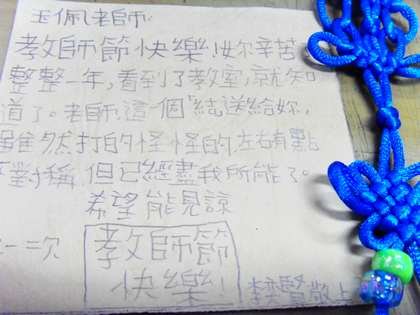 玉佩老師:
教師節快樂!妳辛苦
整整一年,看到了教室,就知
道了。老師,這一個"結送給妳,
雖然打的怪怪的左右有點
對稱,但已經盡我所能了。
希望能見諒
教師節
快樂!
敬上